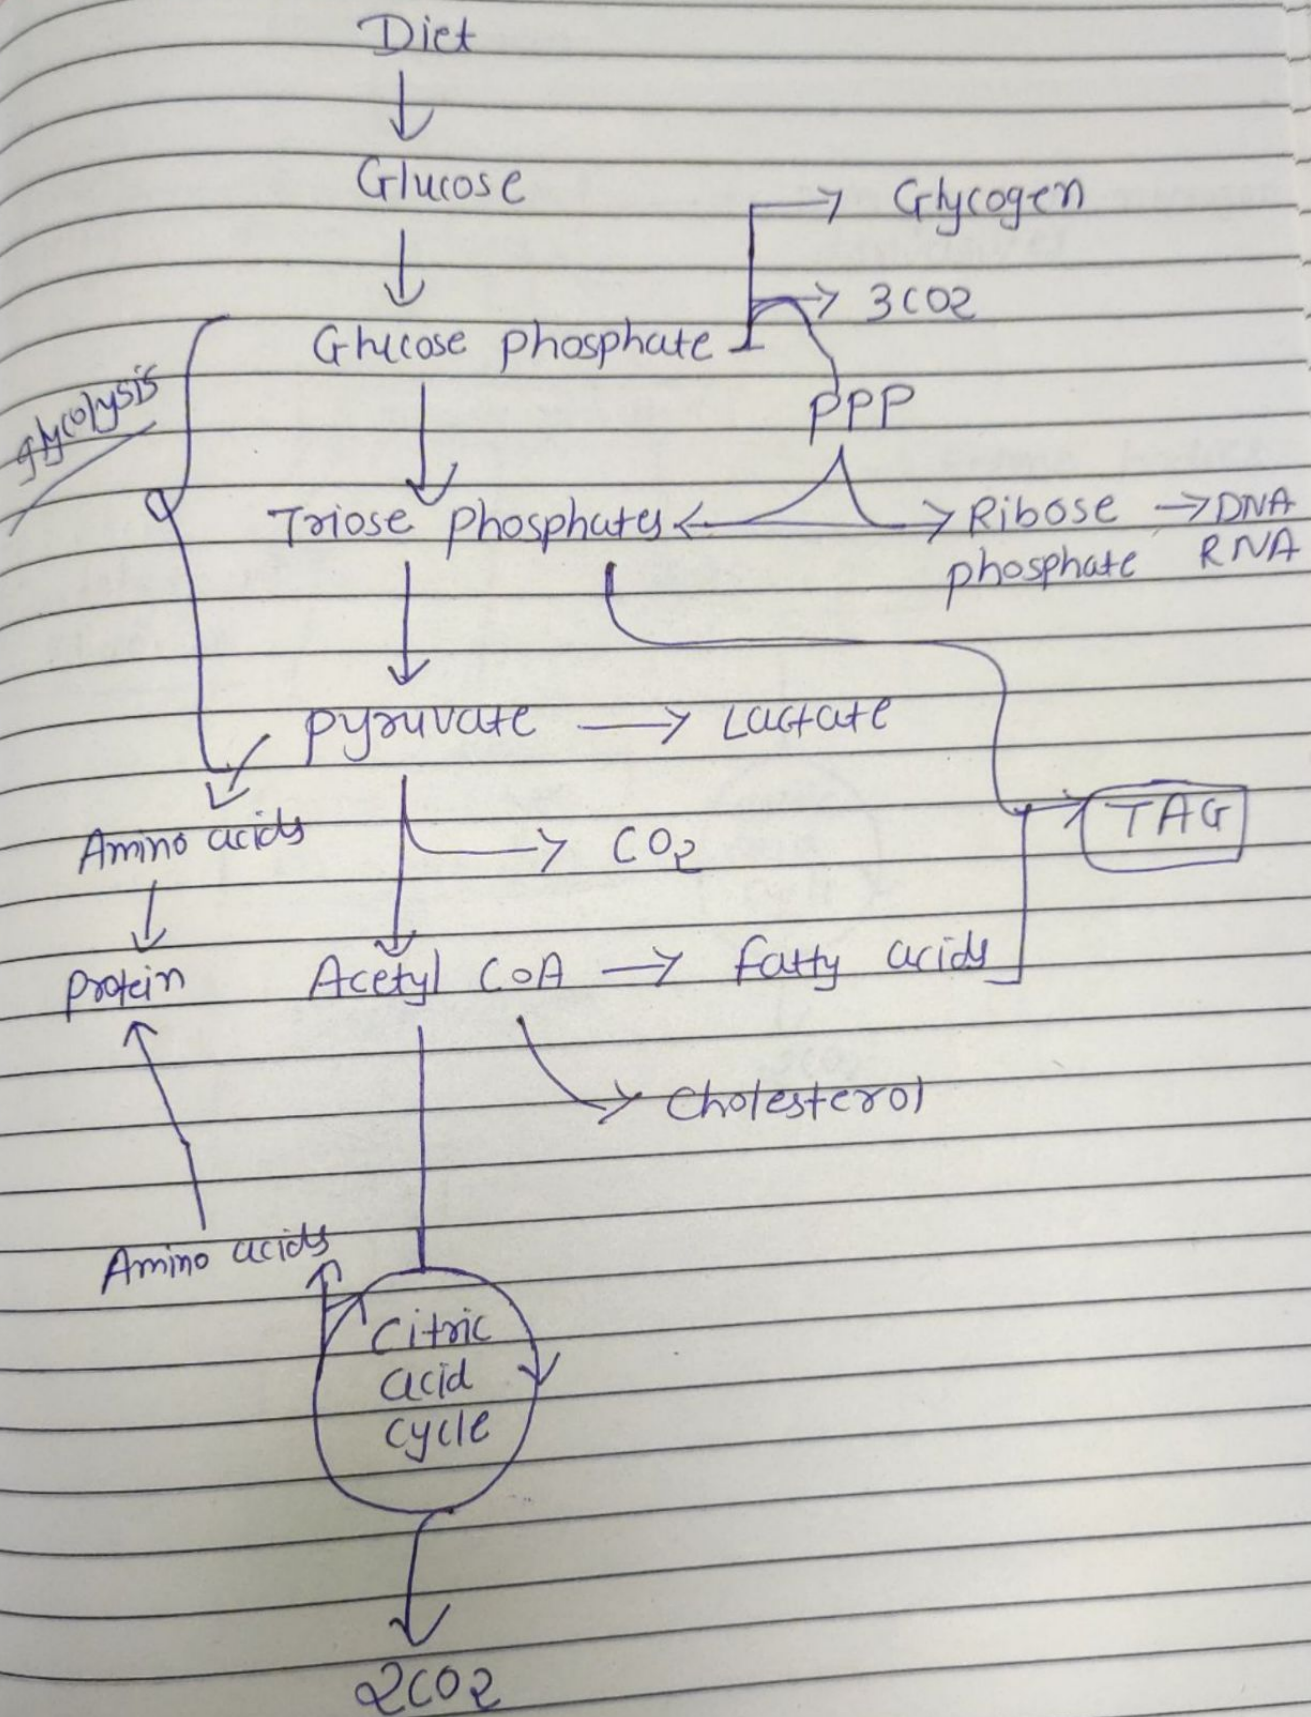 Diet
Glucose
Glycogen
3CO2
Glucose phosphate
glycolysis
PPP
Triose phosphates
Ribose
phosphate
DNA
RNA
pyruvate
Lactate
Amino acids
CO2
TAG
protein
Acetyl CoA
fatty acids
Cholesterol
Amino acids
Citric
acid
cycle
2CO2